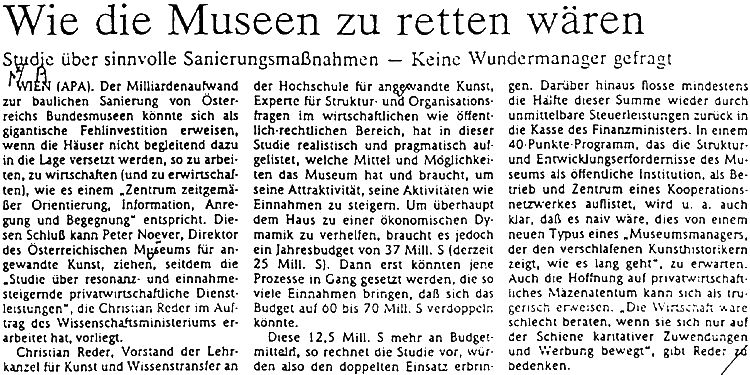 Wie die Museen zu retten wären
Studie über sinnvolle Sanierungsmaßnahmen — Keine Wundermanager gefragt
WIEN (APA). Der Milliardenaufwand
zur baulichen Sanierung von Öster-
reichs Bundesmuseen könnte sich als
gigantische Fehlinvestition erweisen,
wenn die Häuser nicht begleitend dazu
in die Lage versetzt werden, so zu arbei-
ten, zu wirtschaften (und zu erwirtschaf-
ten), wie es einem „Zentrum zeitgemä-
ßer Orientierung, Information, Anre-
gung und Begegnung“ entspricht. Die-
sen Schluß kann Peter Noever, Direktor
des Österreichischen Museums für an-
gewandte Kunst, ziehen, seitdem die
„Studie über resonanz- und einnahme-
steigernde privatwirtschaftliche Dienst-
leistungen“, die Christian Reder im Auf-
trag des Wissenschaftsministeriums er-
arbeitet hat, vorliegt.
Christian Reder, Vorstand der Lehr-
kanzel für Kunst und Wissenstransfer an
der Hochschule für angewandte Kunst,
Experte für Struktur- und Organisations-
fragen im wirtschaftlichen wie öffent-
lich-rechtlichen Bereich, hat in dieser
Studie realistisch und pragmatisch auf-
gelistet, welche Mittel und Möglichkei-
ten das Museum hat und braucht, um
seine Attraktivität, seine Aktivitäten wie
Einnahmen zu steigern. Um überhaupt
dem Haus zu einer ökonomischen Dy-
namik zu verhelfen, braucht es jedoch
ein Jahresbudget von 37 Mill. S (derzeit
25 Mill. S). Dann erst könnten jene
Prozesse in Gang gesetzt werden, die so
viele Einnahmen bringen, daß sich das
Budget auf 60 bis 70 Mill. S verdoppeln
könnte.
Diese 12,5 Mill. S mehr an Budget-
mitteln, so rechnet die Studie vor, wür-
den also den doppelten Einsatz erbrin-
gen. Darüber hinaus flösse mindestens
die Hälfte dieser Summe wieder durch
unmittelbare Steuerleistungen zurück in
die Kasse des Finanzministers. In einem
40-Punkte-Programm, das die Struktur-
und Entwicklungserfordernisse des Mu-
seums als öffentliche Institution, als Be-
trieb und Zentrum eines Kooperations-
netzwerkes auflistet, wird u. a. auch
klar, daß es naiv wäre, dies von einem
neuen Typus eines „Museumsmanagers,
der den verschlafenen Kunsthistorikern
zeigt, wie es lang geht“, zu erwarten.
Auch die Hoffnung auf privatwirtschaft-
liches Mäzenatentum kann sich als trü-
gerisch erweisen. „Die Wirtschaft wäre
schlecht beraten, wenn sie sich nur auf
der Schiene karitativer Zuwendungen
und Werbung bewegt“, gibt Reder zu
bedenken.